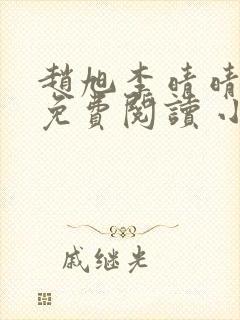 趙旭李晴晴
免費閱讀小
戚继光